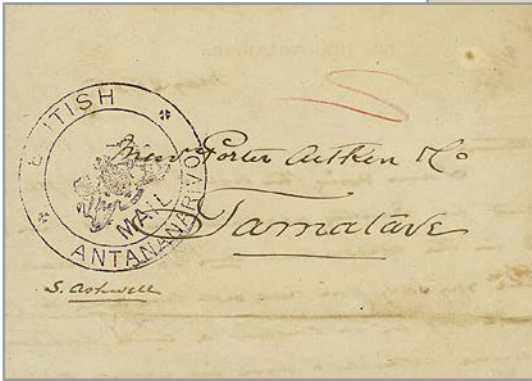 BRITISH
MAIL
ANTANANARIVO
Messrs Porter Aitken & Co
Tamatave
S. Ashwell